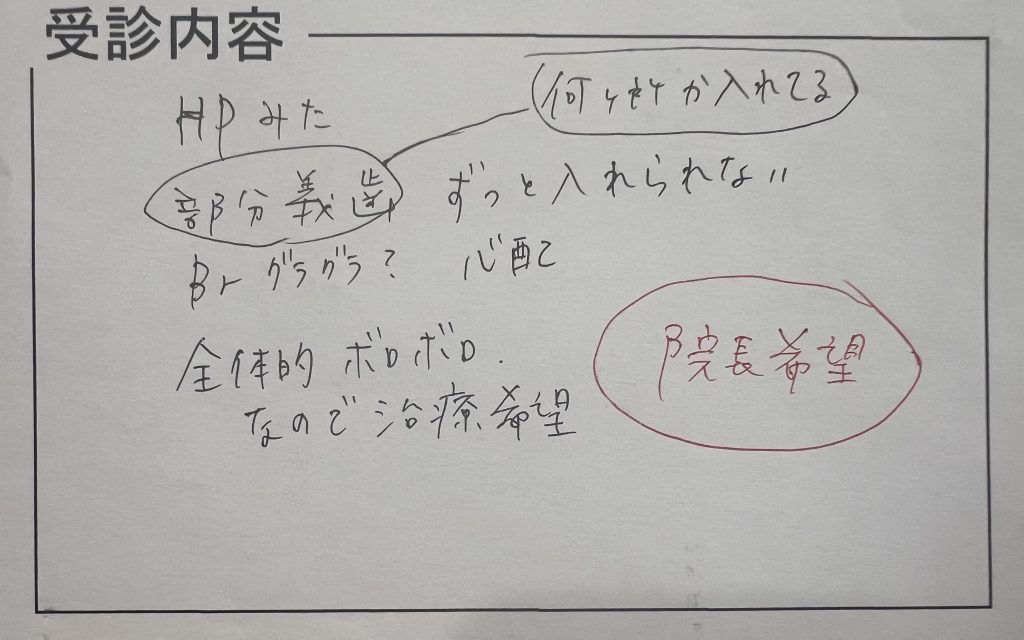 受診内容
何ヶ所か入れてる
HPみた
部分義歯 ずっと入れられない
Br グラグラ? 心配
全体的 ボロボロ.
なので治療希望
院長希望